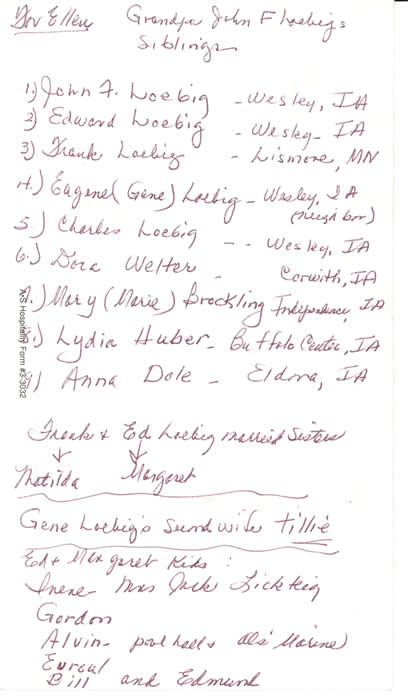 For Ellen
Grandpa John F Loebigs
Siblings
1.) John F. Loebig - Wesley, IA
2) Edward Loebig - Wesley - IA
3) Frank Loebig - Lismore, MN
4.) Eugene (Gene) Loebig - Wesley, IA
(neighbor)
5.) Charles Loebig - - Wesley, IA
6.) Dora Welter - Corwith, IA
7.) Mary (Marie) Brockling Independence, IA
8.) Lydia Huber - Buffalo Center, IA
9) Anna Dole - Eldora, IA
AJS Hospitality Form #3-3032
Frank & Ed Loebig married Sisters
Matilda Margaret
Gene Loebig's second wife Tillie
Ed + Margaret Kids :
Irene - Mrs Jack Lickteig
Gordon
Alvin - pool hall &
Bill and Edmund